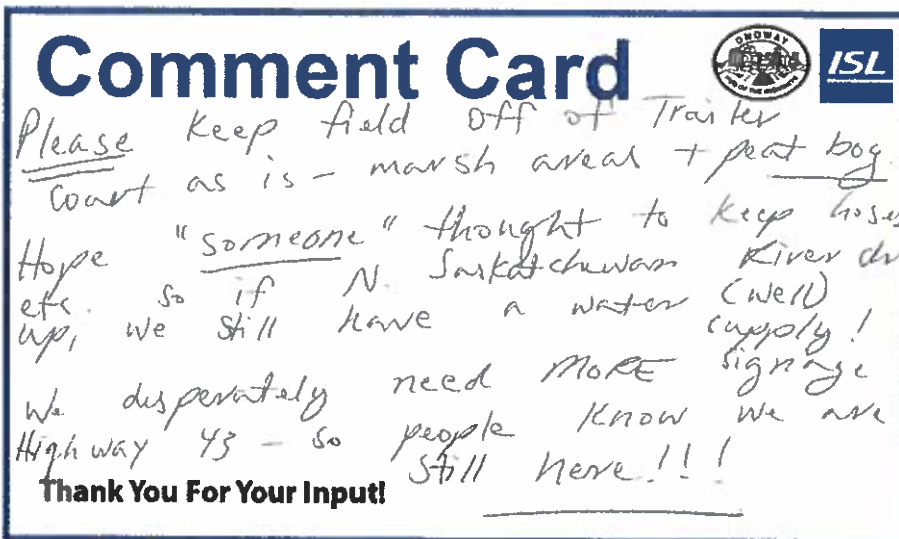 Comment Card
ONOWAY
ISL
Please keep field off of Trailer
Court as is - marsh areas + peat bog
Hope "someone" thought to keep hoses
etc. so if N. Saskatchewan River
up, we still have a water (well)
supply!
We desperately need MORE signage
Highway 43 - so people know we are
still here!!!
Thank You For Your Input!